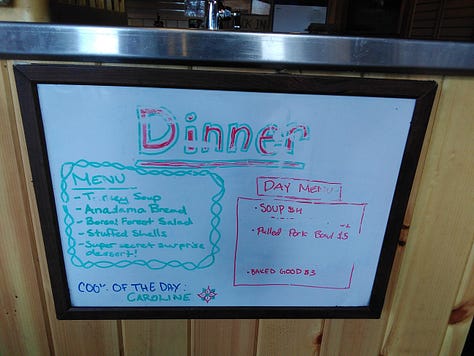 Dinner
MENU
- Turkey Soup
- Anadama Bread
- Boreal Forest Salad
- Stuffed Shells
- Super secret surprise
dessert!
COOK OF THE DAY:
CAROLINE
DAY MENU
• SOUP $4
• Pulled Pork Bowl 15
• BAKED GOOD $3